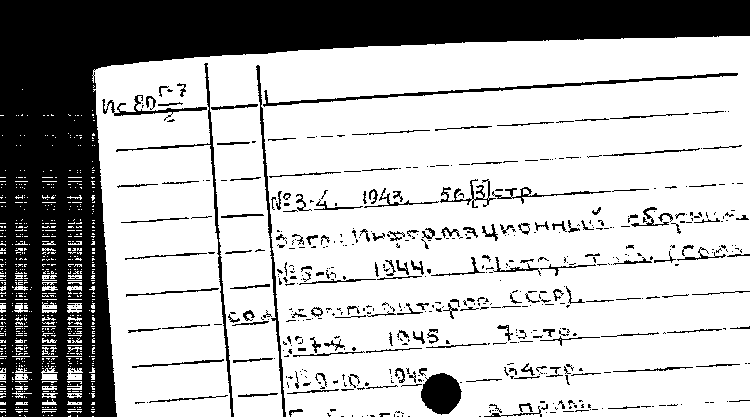 Ис 80 Г-7/2
№3-4. 1943. 56,[3]стр.
Загл: Информационный сборник.
№5-6. 1944. 121стр, с табл. (Союз
композиторов СССР).
№7-8. 1945. 70стр.
№9-10. 1945 64стр.